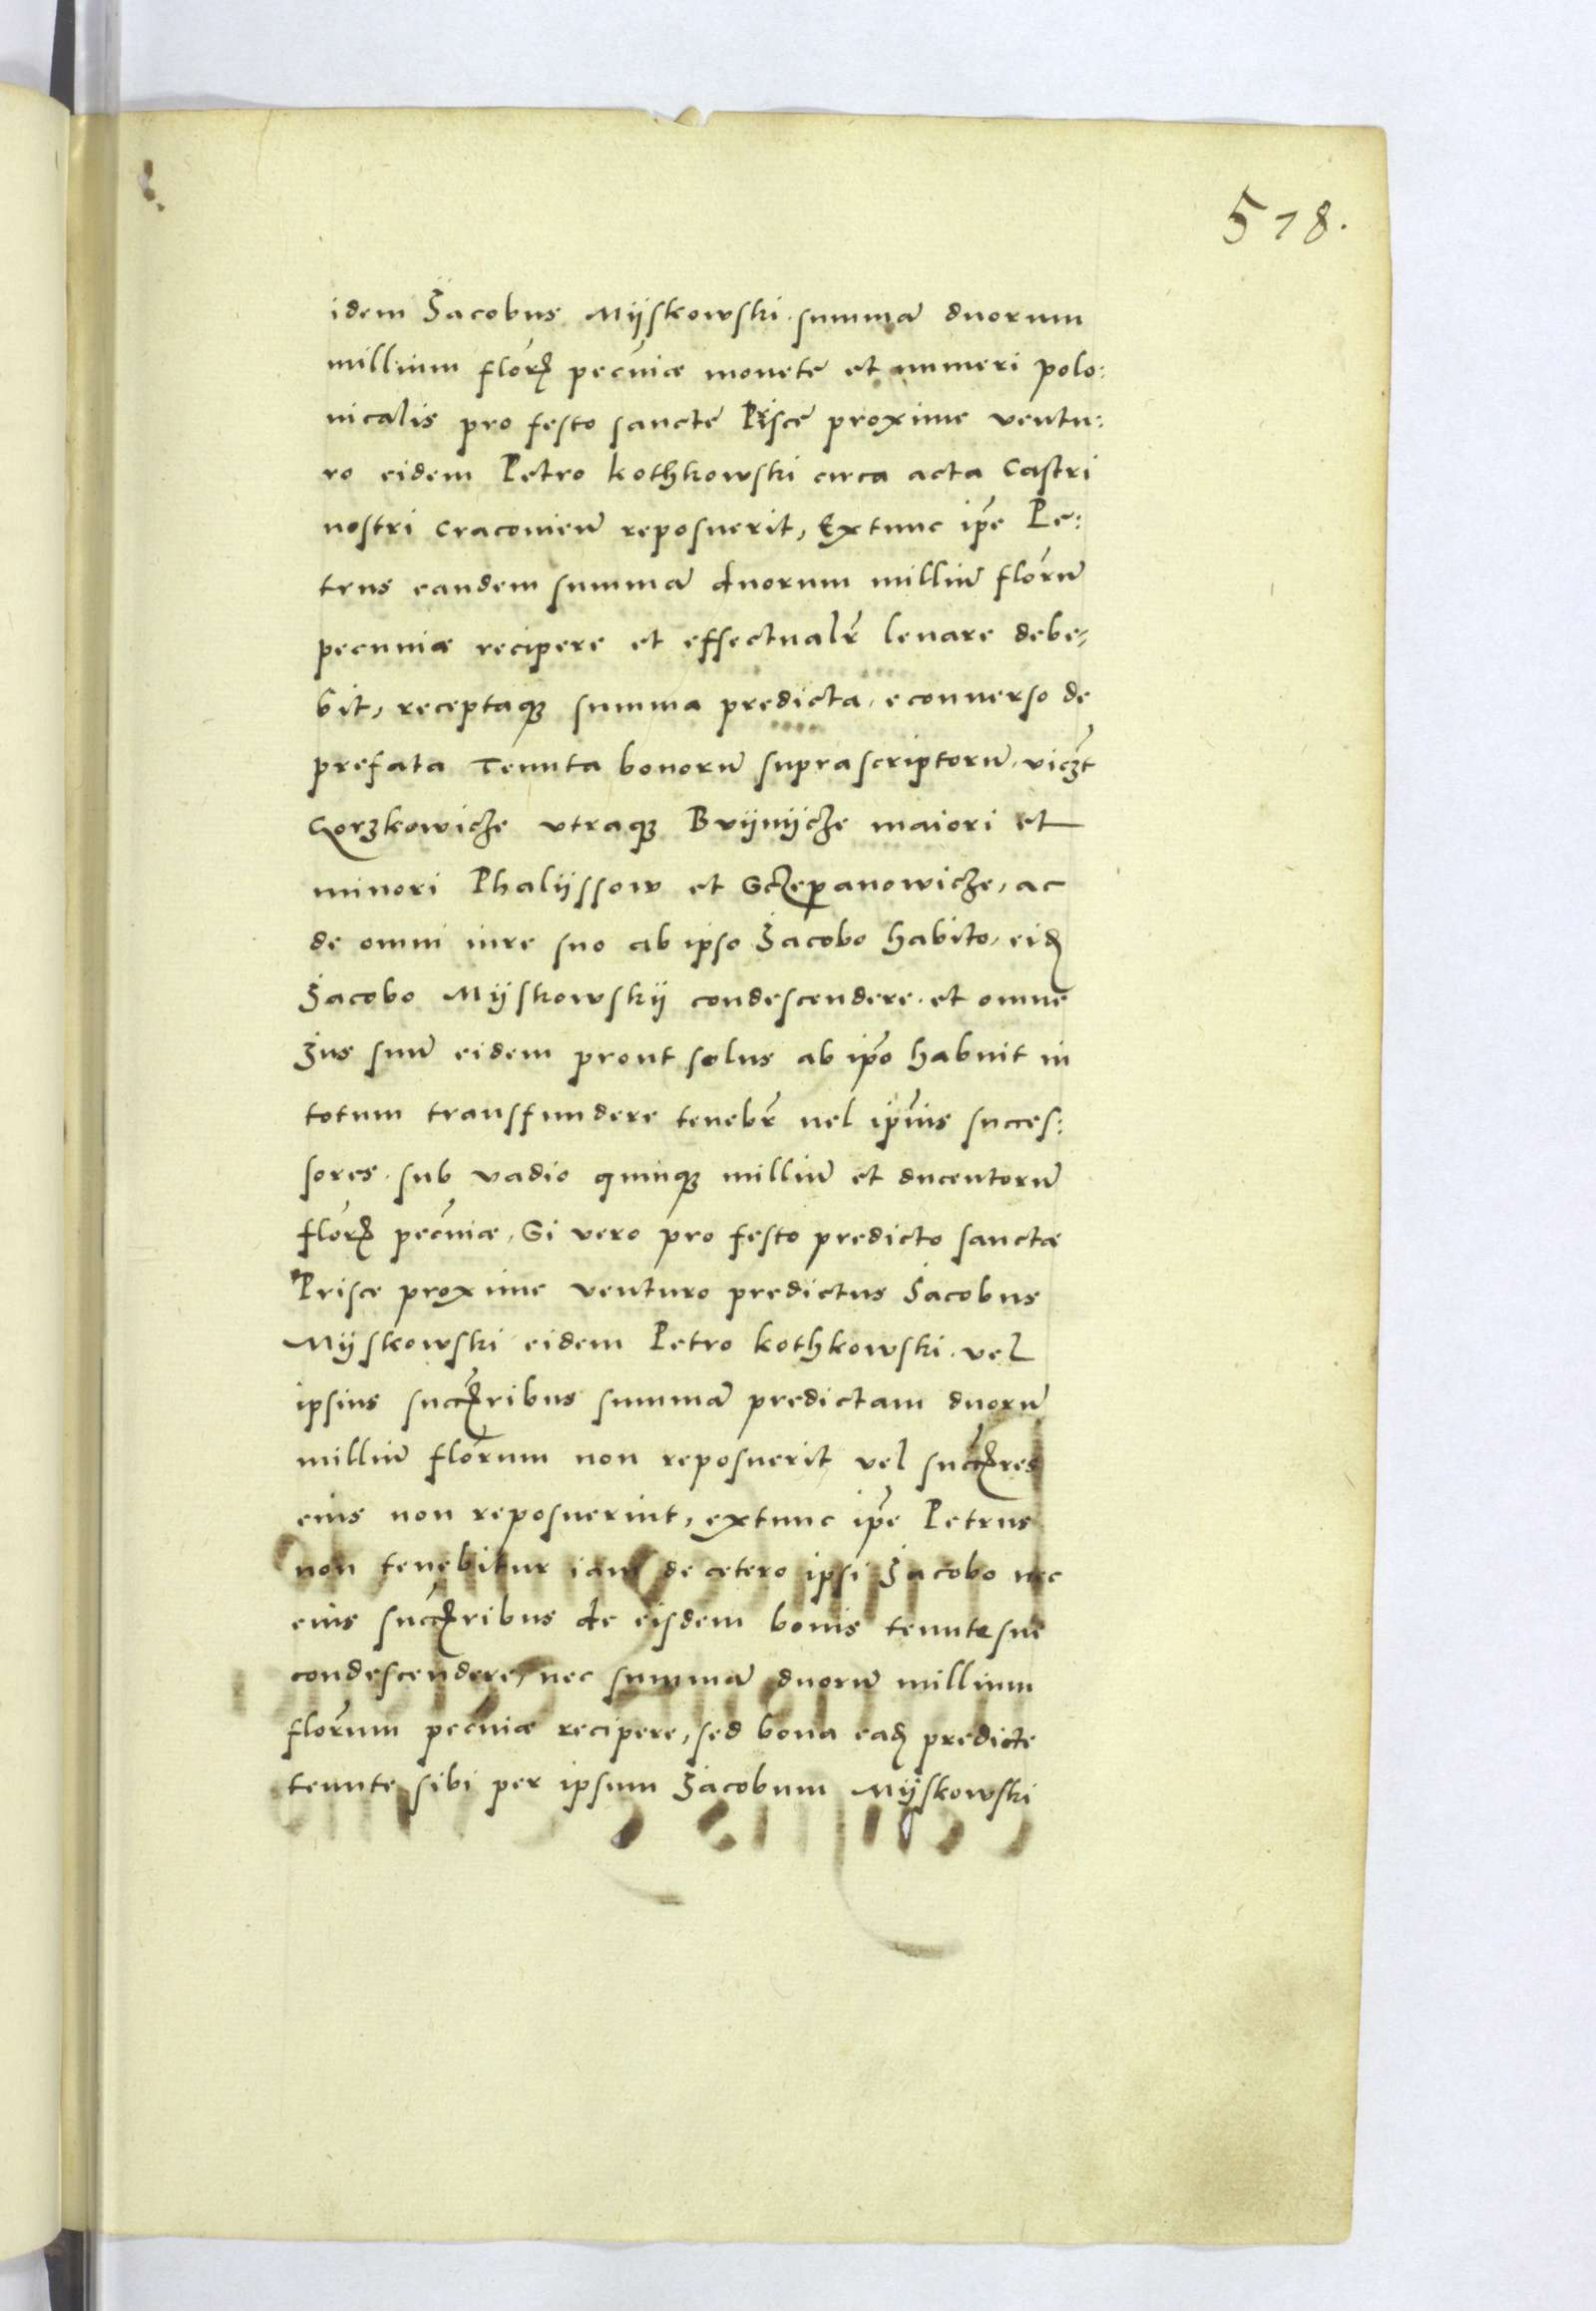 578.
idem Jacobus Mÿskowski summā duorum
millium flor̄ pecūiæ monete et numeri polo:
nicalis pro festo sancte Prisce proxime ventu:
ro eidem Petro kothkowski circa acta Castri
nostri Cracovieñ reposuerit, Extunc ip̄e Pe:
trus eandem summā duorum milliū florū
pecuniæ recipere et effectualr̄ levare debe-
bit, receptaqȝ summa predicta, econverso de
prefata Tenuta bonorū suprascriptorū, viczt̄
Gorzkowicze utraqȝ Brÿnÿcze maiori et
minori Phalÿssow et Sczepanowicze, ac
de omni iure suo ab ipso Jacobo habito, eid̄
Jacobo Mÿskowskÿ condescendere et omne
Jus suū eidem prout solus ab ip̄o habuit in
totum transfundere tenebr̄ vel ip̄ius succes:
sores sub vadio quinqȝ milliū et ducentorū
flor̄ pecūiæ, Si vero pro festo predicto sanctæ
Prisce proxime venturo predictus Jacobus
Mÿskowski eidem Petro kothkowski vel
ipsius succ̄ribus summā predictam duorū
milliū flor̄um non reposuerit vel succ̄res
eius non reposuerint, extunc ip̄e Petrus
non tenebitur iam de cetero ipsi Jacobo nec
eius succ̄ribus de eisdem bonis tenute sue
condescendere, nec summā duorū millium
flor̄um pecūiæ recipere, sed bona ead̄ predicte
tenute sibi per ipsum Jacobum Mÿskowski